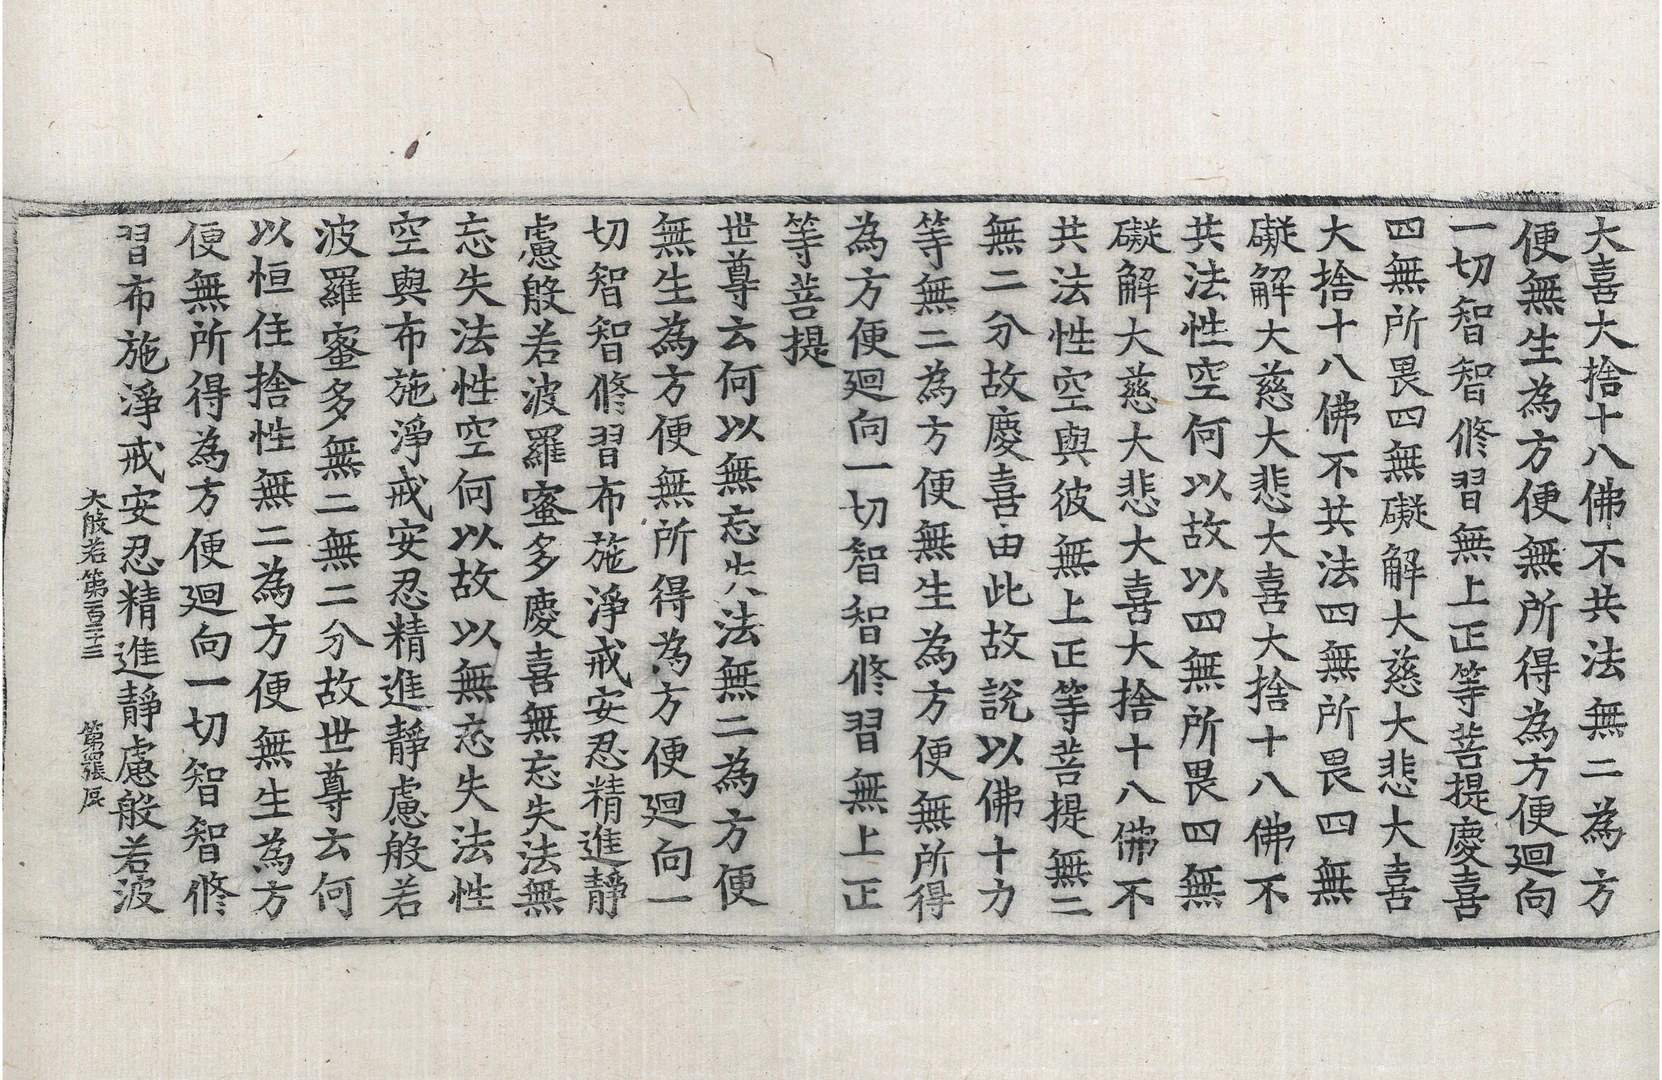 大喜大捨十八佛不共法無二為方
便無生為方便無所得為方便廻向
一切智智修習無上正等菩提慶喜
四無所畏四無礙解大慈大悲大喜
大捨十八佛不共法四無所畏四無
礙解大慈大悲大喜大捨十八佛不
共法性空何以故以四無所畏四無
礙解大慈大悲大喜大捨十八佛不
共法性空與彼無上正等菩提無二
無二分故慶喜由此故說以佛十力
等無二為方便無生為方便無所得
為方便廻向一切智智修習無上正
等菩提
世尊云何以無忘失法無二為方便
無生為方便無所得為方便廻向一
切智智修習布施淨戒安忍精進靜
慮般若波羅蜜多慶喜無忘失法無
忘失法性空何以故以無忘失法性
空與布施淨戒安忍精進靜慮般若
波羅蜜多無二無二分故世尊云何
以恒住捨性無二為方便無生為方
便無所得為方便廻向一切智智修
習布施淨戒安忍精進靜慮般若波
大般若第一百二十三 第四張 辰